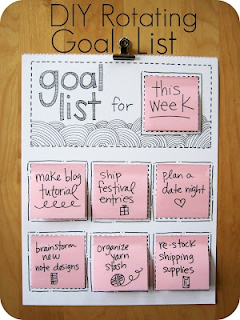 DIY Rotating
Goal List
goal
list for
this
week
make blog
tutorial
ship
festival
entries
plan a
date night
brainstorm
new
note designs
organize
yarn
stash
re-stock
shipping
supplies